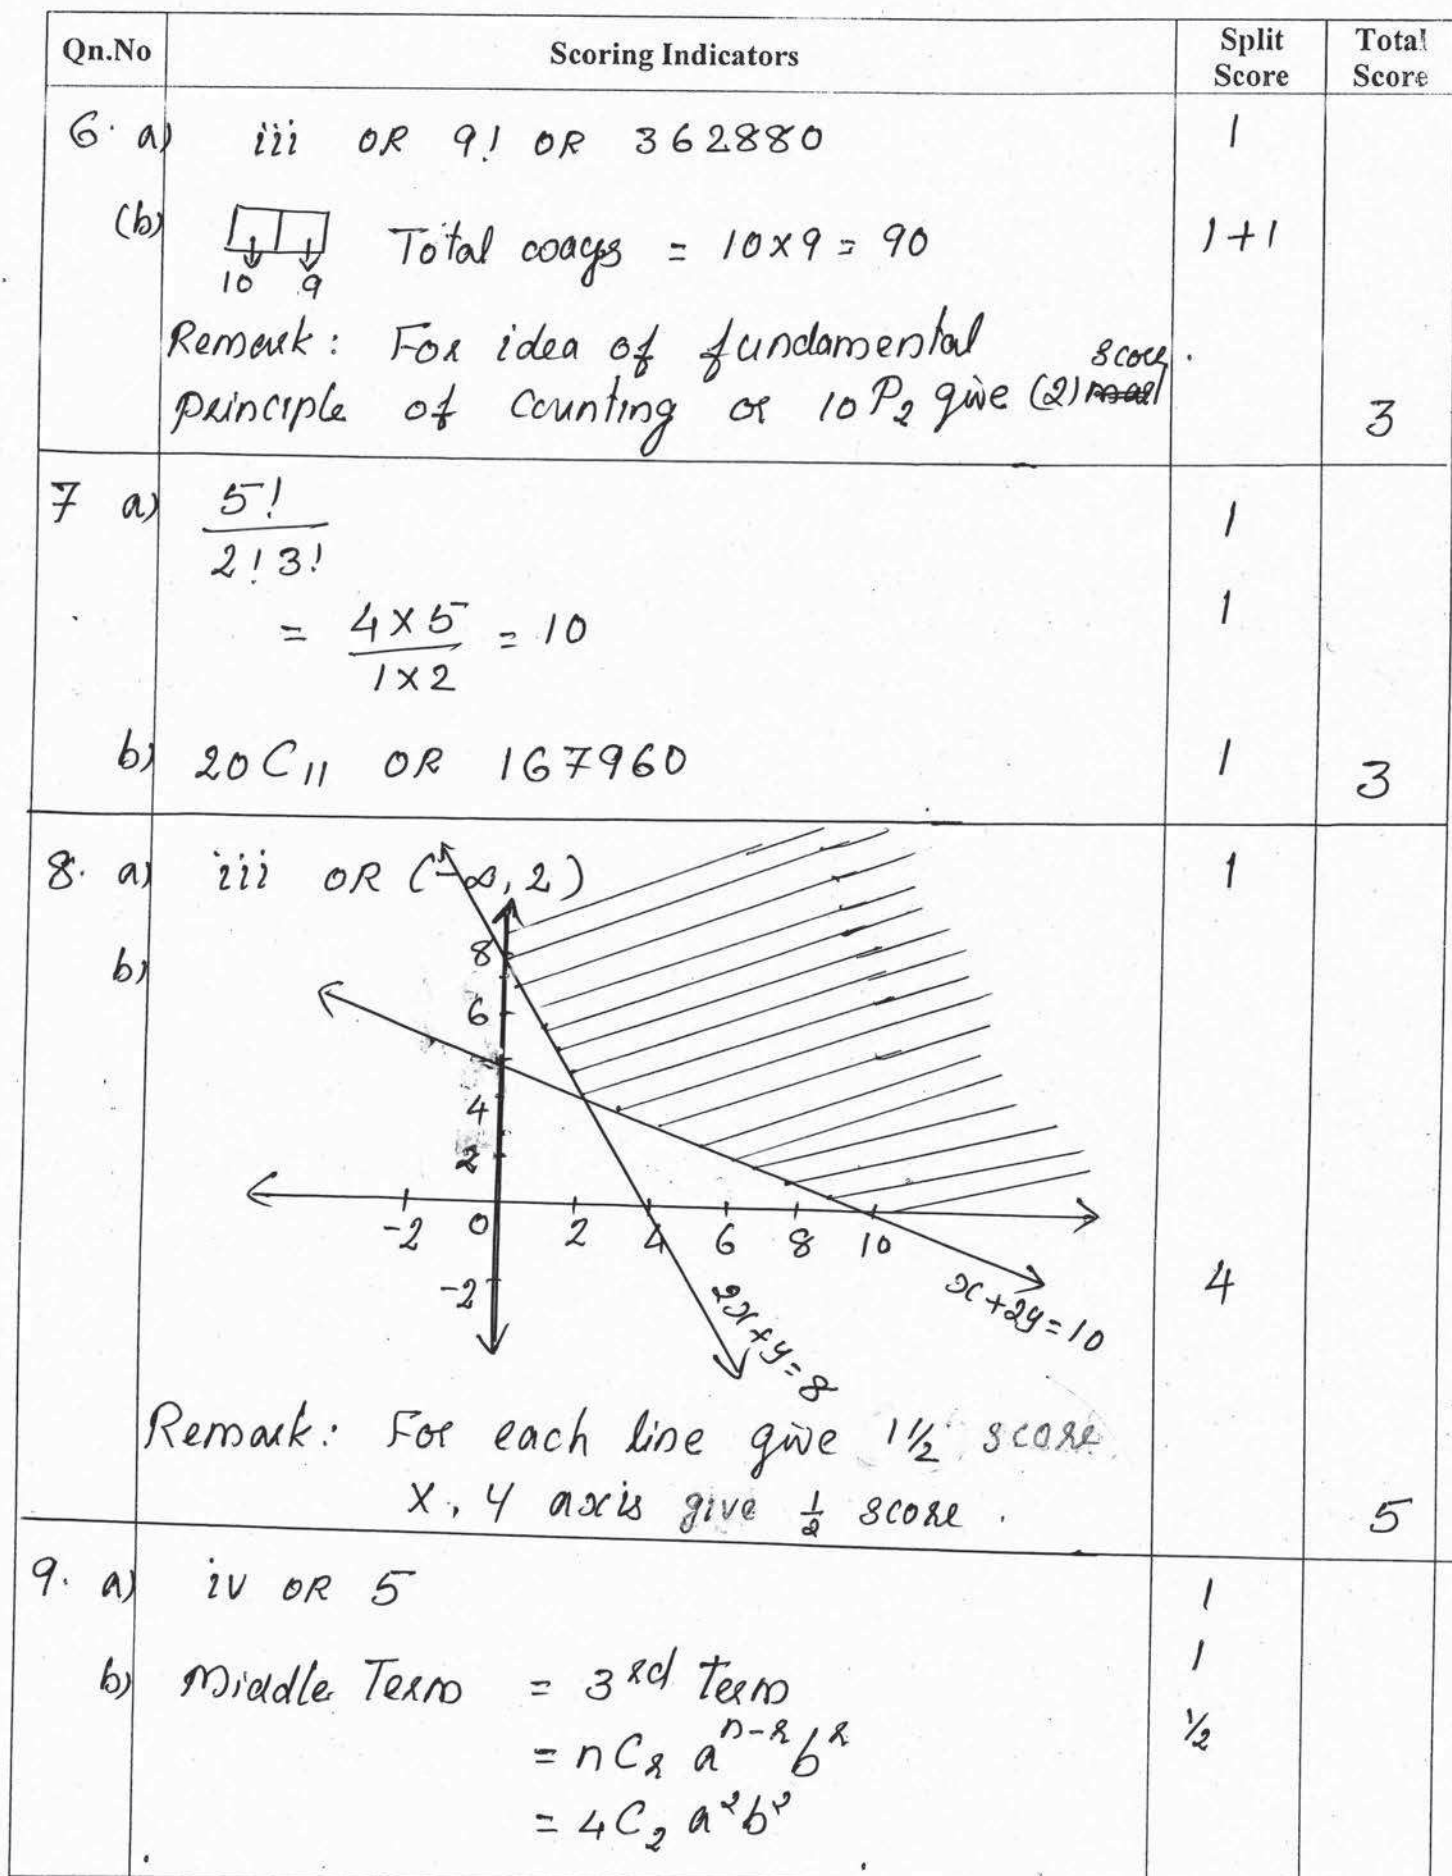 Qn.No Scoring Indicators Split Score Total Score
6. a) iii OR 9! OR 362880 1
(b) Total ways = 10×9 = 90 1+1
10 9
Remark: For idea of fundamental
principle of counting or 10P₂ give (2) score
3
7 a) 5! 1
2!3!
= 4×5 = 10 1
1×2
b) 20C₁₁ OR 167960 1 3
8. a) iii OR (-∞, 2) 1
b)
8
6
4
2
-2 0 2 4 6 8 10
-2
2x+y=8
x+2y=10
4
Remark: For each line give 1½ score
X, Y axis give ½ score. 5
9. a) iv OR 5 1
b) Middle Term = 3rd term 1
= nCr a^(n-r) b^r ½
= 4C₂ a²b²